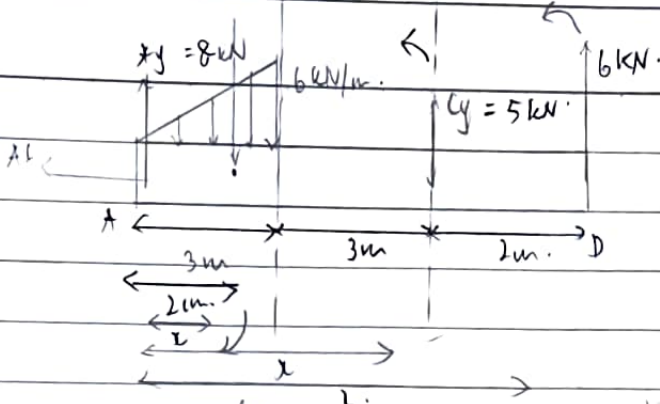 Ay = 8kN
6 kN/m.
Cy = 5kN.
6kN.
A
3m
3m
2m.
D
2m.
x
x